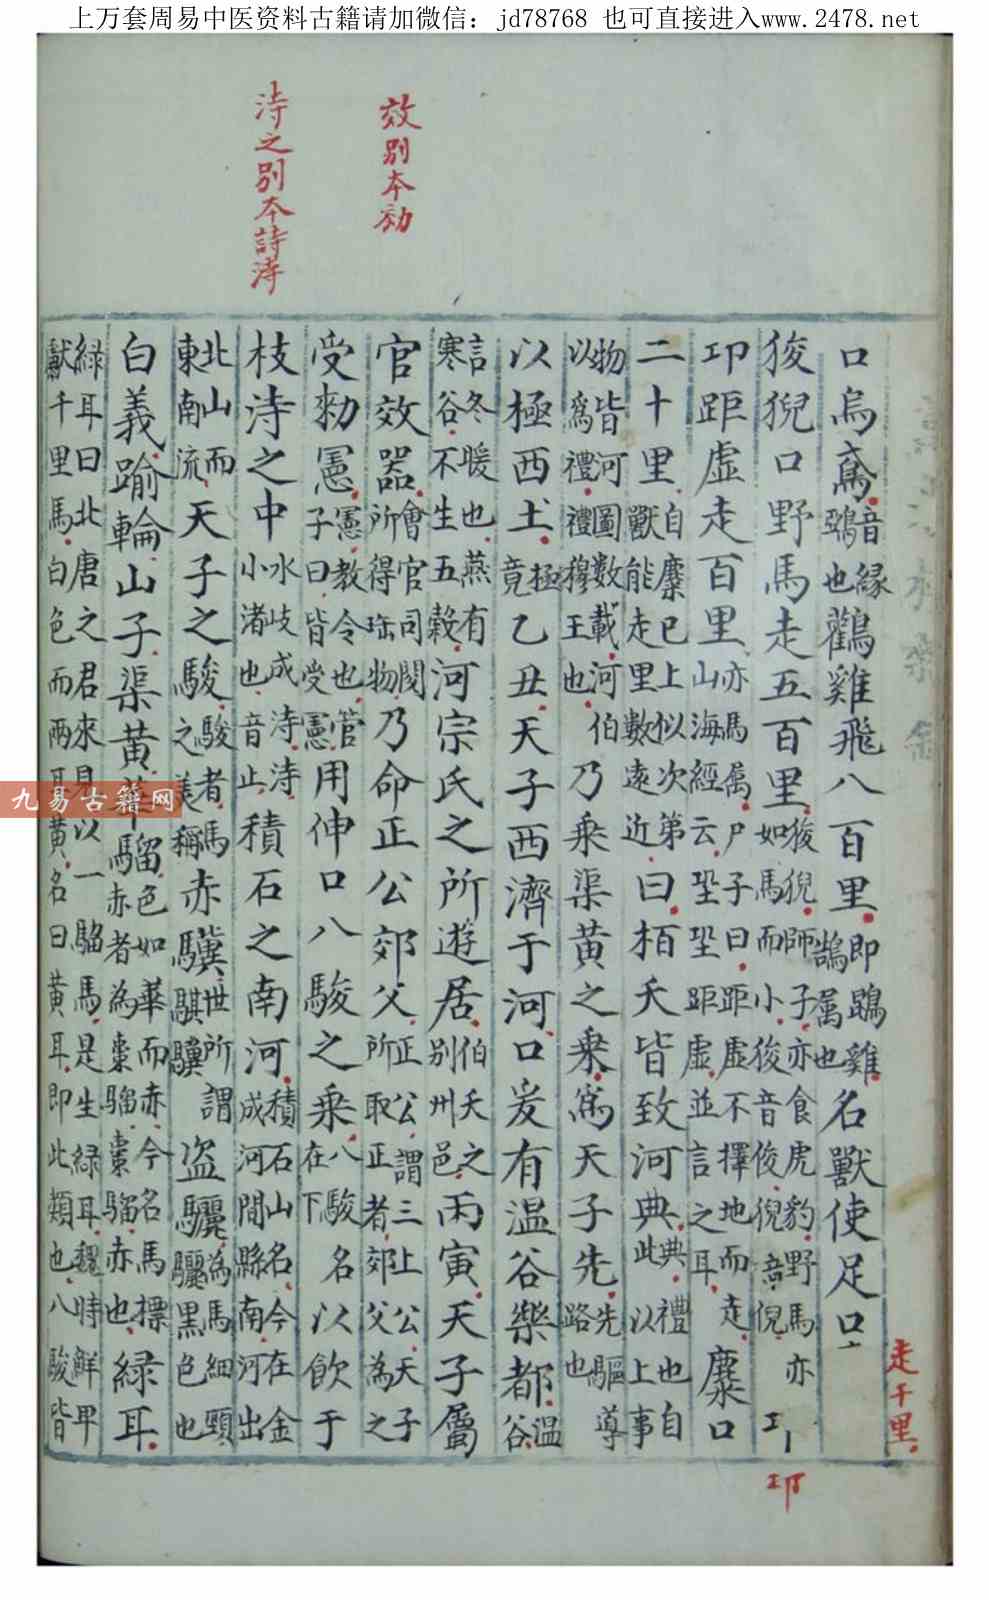 上万套周易中医资料古籍请加微信：jd78768 也可直接进入www.2478.net
效别本効
洔之别本詩洔
口烏鳶音緣鵶也鸛雞飛八百里即鵾雞鵠属也名獸使足口
走千里
狻猊口野馬走五百里狻猊師子亦食虎豹野馬亦如馬而小狻音俊猊音倪
卭
卭距虚走百里亦馬属尸子曰距虚不擇地而走山海經云蛩蛩距虚並言之耳麋口
二十里自麋已上似次第獸能走里數遠近曰栢夭皆致河典典禮也自此以上事
物皆河圖數載河伯以爲禮禮穆王也乃乘渠黃之乘爲天子先先驅導路也
以極西土極竟乙丑天子西濟于河口爰有温谷樂都温谷
言冬暖也燕有寒谷不生五穀河宗氏之所遊居伯夭之别州邑丙寅天子屬
官效器會官司閱所得珤物乃命正公郊父正公謂三上公天子所取正者郊父為之
受勑憲憲教令也管子曰皆受憲用伸口八駿之乘八駿名在下以飲于
枝洔之中水岐成洔洔小渚也音止積石之南河積石山名今在金成河間縣南河出
北山而東南流天子之駿駿者馬之羙稱赤驥世所謂騏驥盜驪為馬細頸驪黑色也
白義踰輪山子渠黃華騮色如華而赤今名馬標赤者為棗騮棗騮赤也綠耳
綠耳曰北唐之君來見以一騮馬是生綠耳魏時鮮卑獻千里馬白色而兩耳黃名曰黃耳即此類也八駿皆
九易古籍网